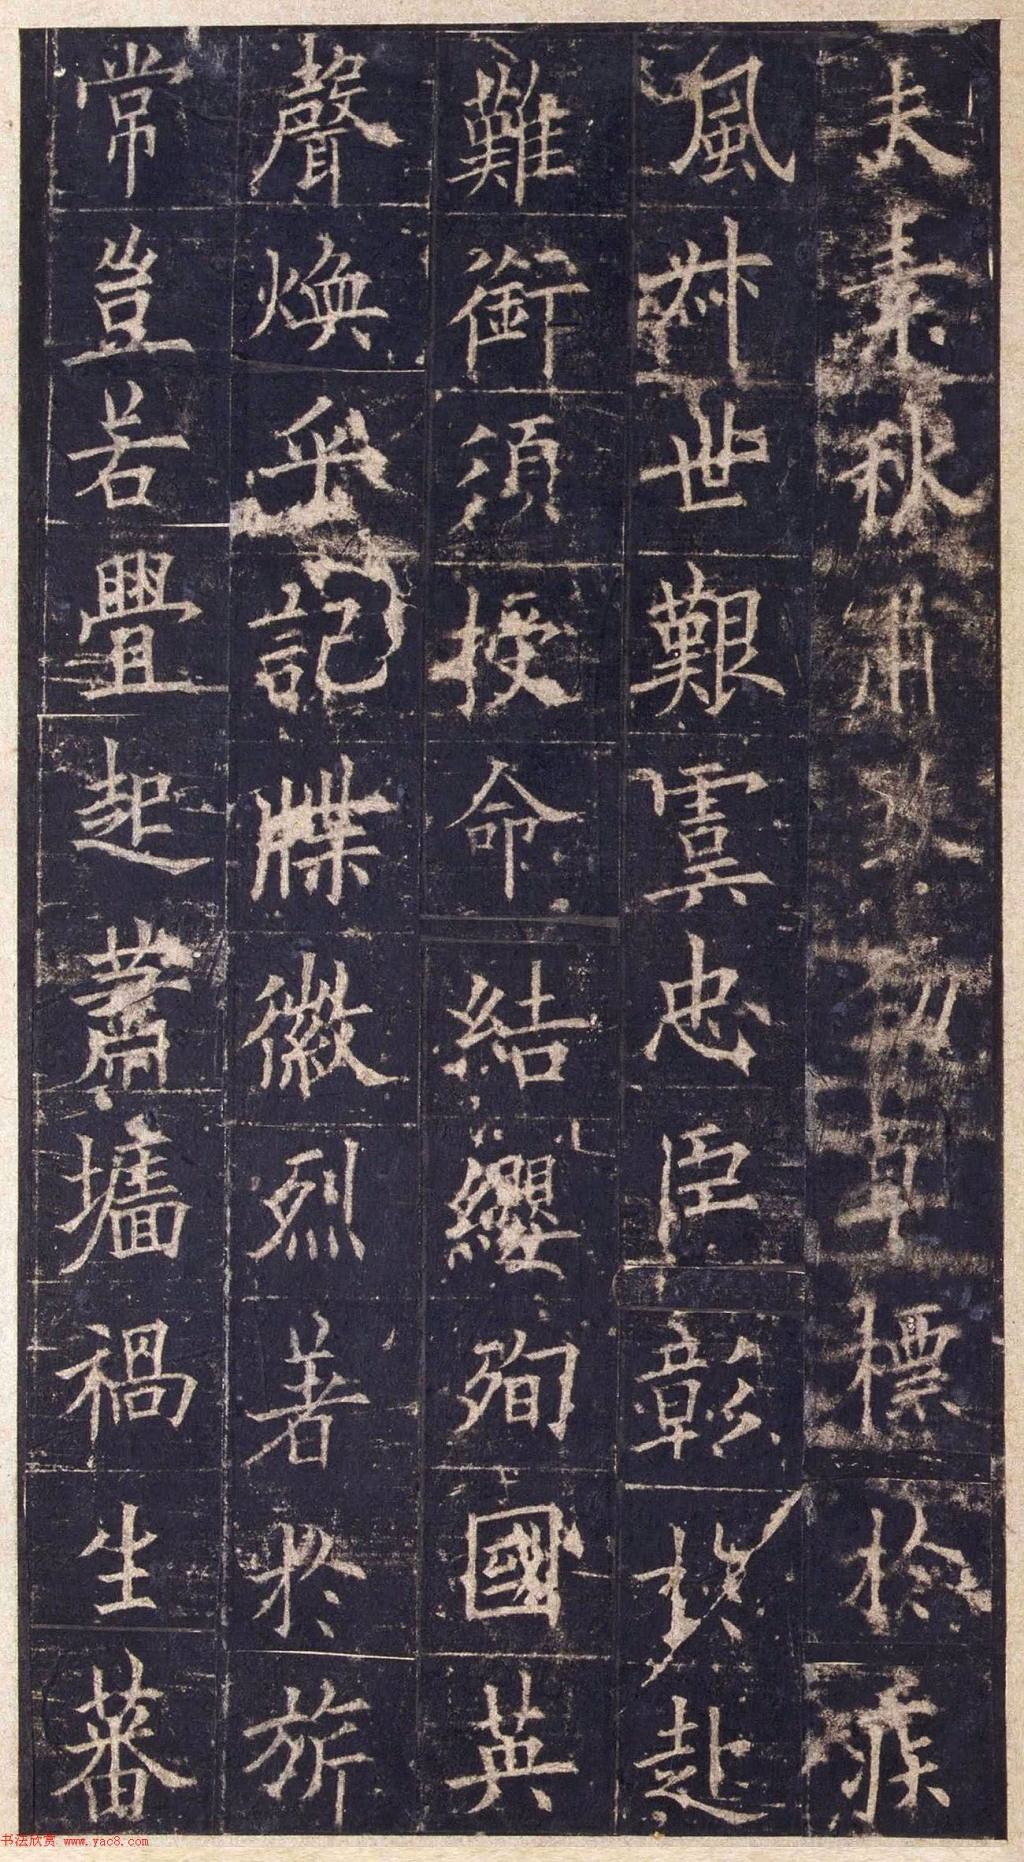 夫素秋肅煞勁草標於疾
風叔世艱虞忠臣彰於赴
難銜須授命結纓殉國英
聲煥乎記牒徽烈著於旂
常豈若釁起蕭墻禍生蕃
书法欣赏 www.yac8.com